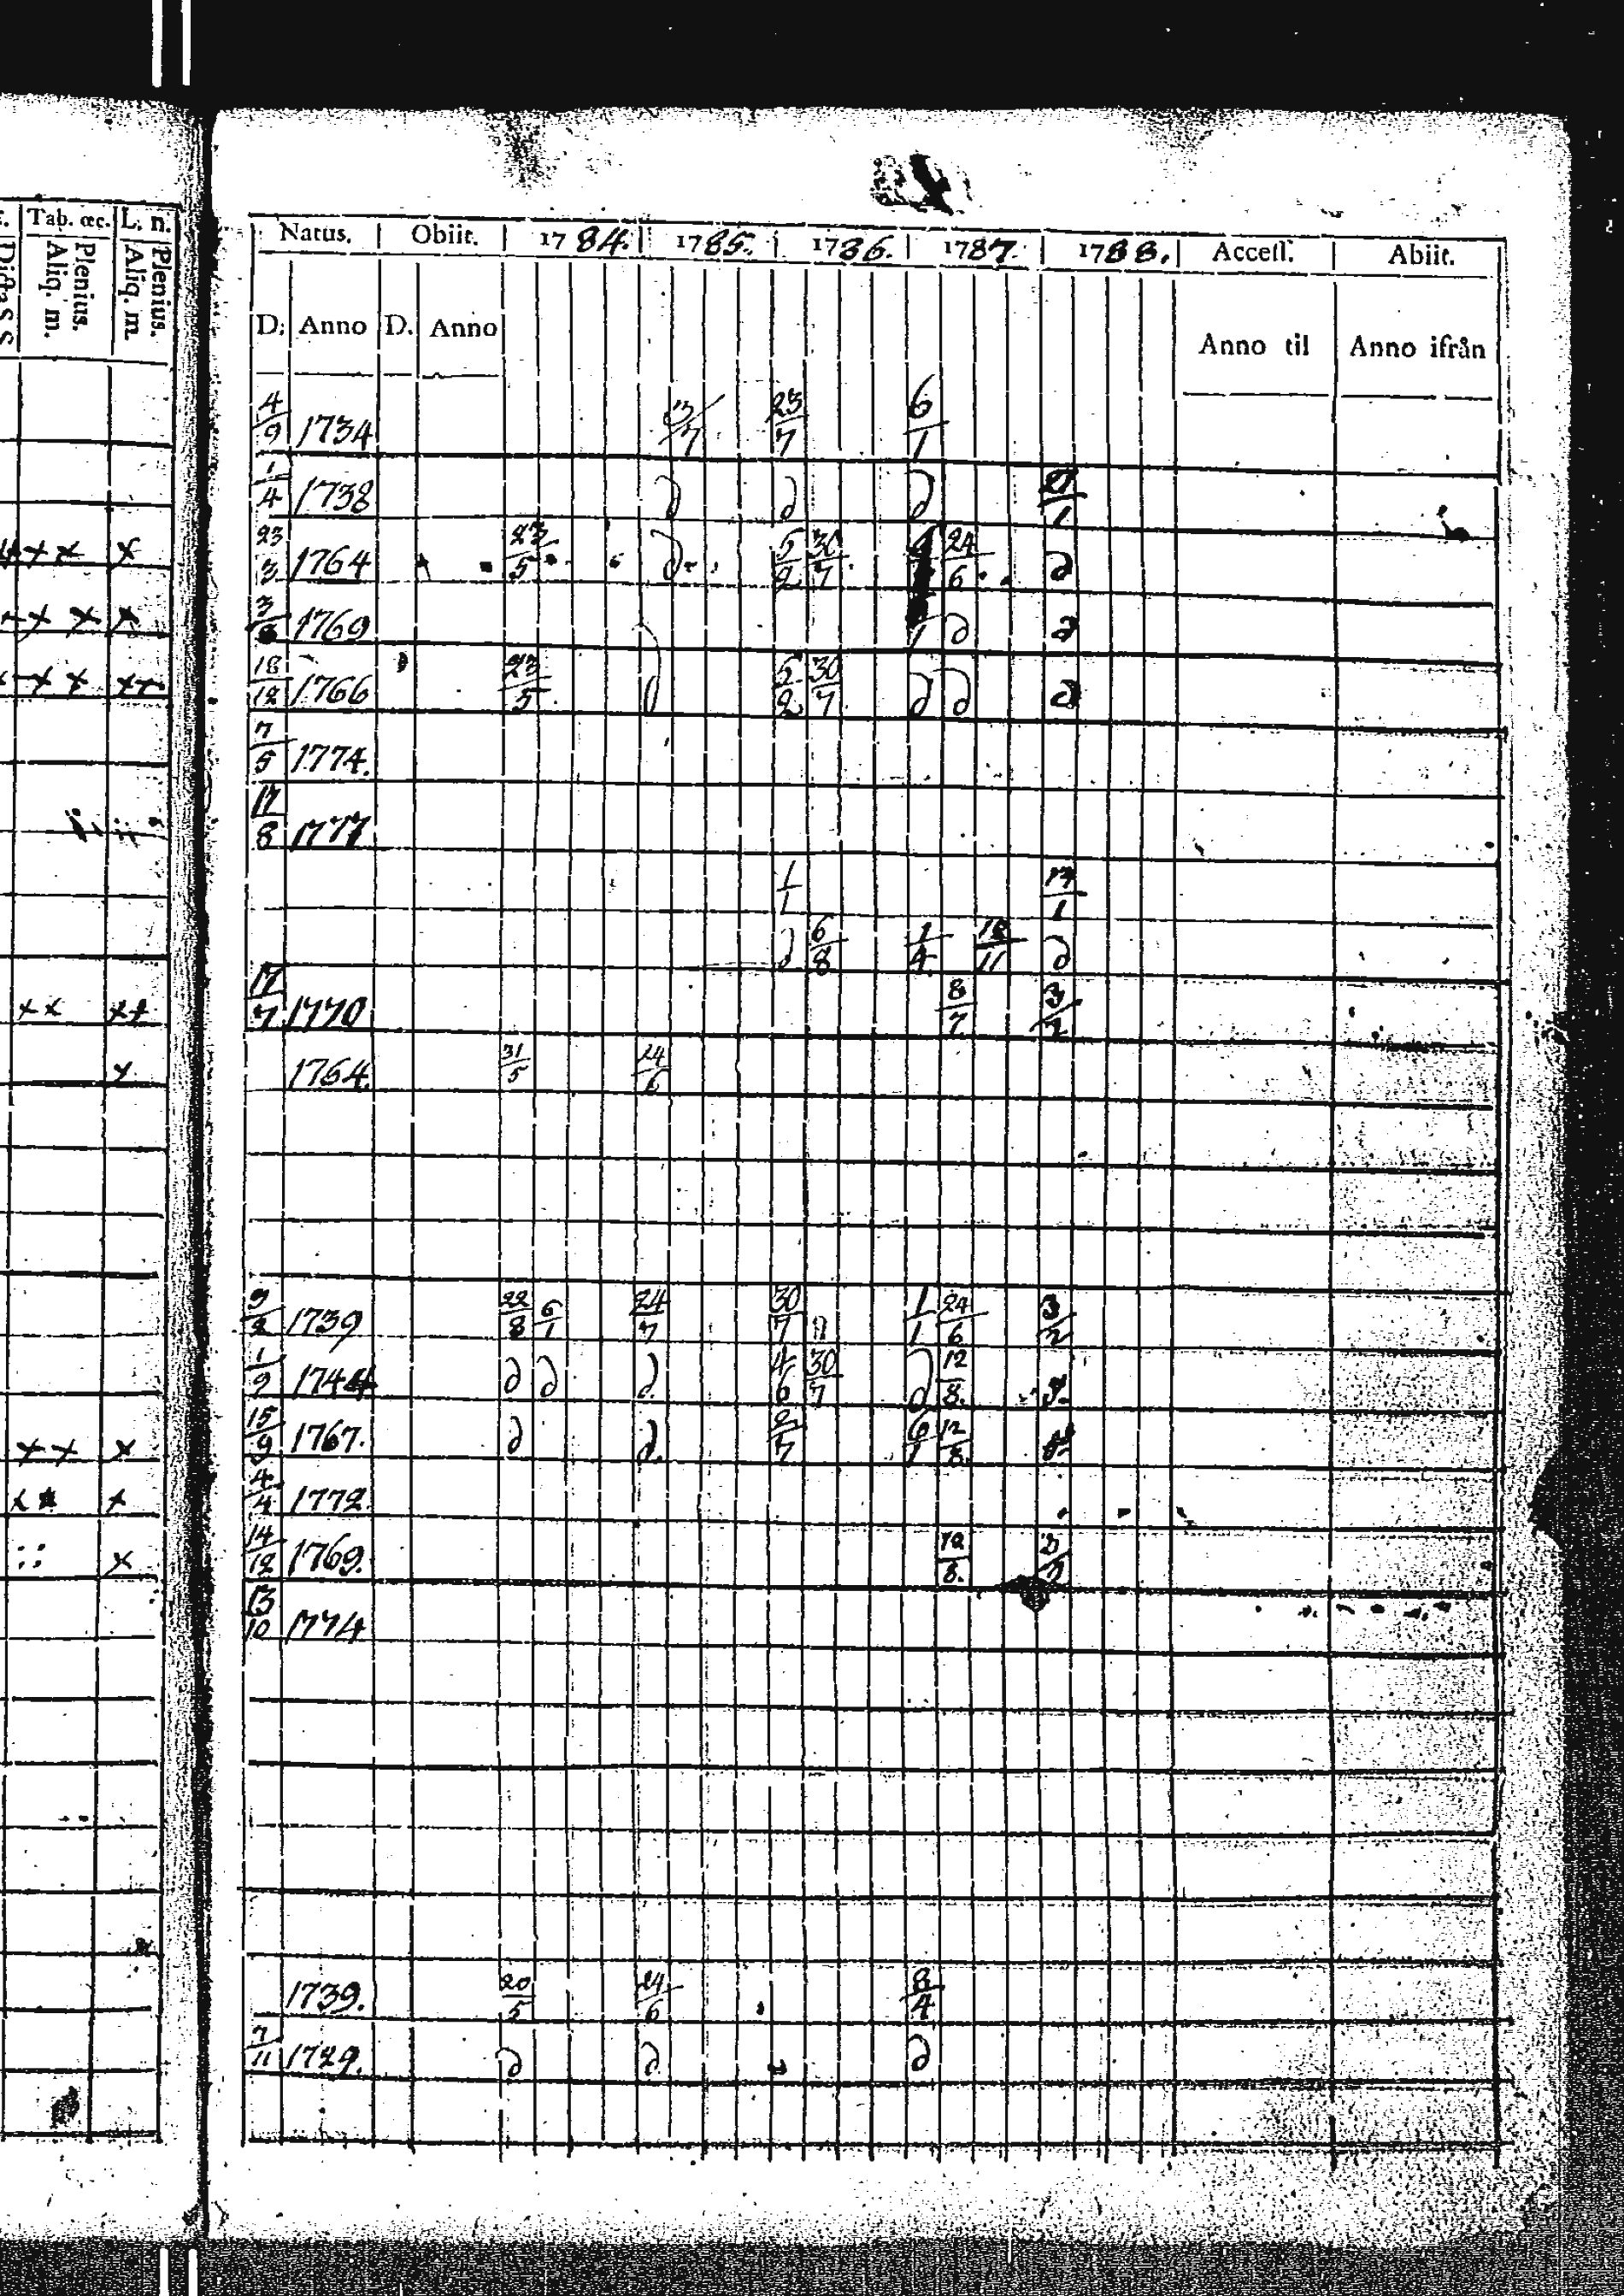 Tab. œc. L. n.
Plenius. Aliq. m. Plenius. Aliq. m.
Natus. Obiit. 1784. 1785. 1786. 1787. 1788. Access. Abiit.
D. Anno D. Anno Anno til Anno ifrån
4/9 1734 23/7 6/1
1/4 1738 d d d 21/1
23/3 1764 23/5 d 5/2 30/7 24/6 d
3 1769 d d
18/12 1766 23/5 5/2 30/7 d d d
7/5 1774.
17/8 1777
1/1 1
d 6/8 1/4 18/11 d
17/7 1770 8/7 3/2
1764. 31/5 24/6
9/2 1739 22/8 6/1 24/7 30/7 1/1 24/6 3/2
1/9 1744 d d d 4/6 30/7 d 12/8.
15/9 1767. d d 2/7 6/1 12/8.
4/4 1772.
14/12 1769. 12/8.
13/10 1774
1739. 20/5 24/6 8/4
7/11 1729. d d d